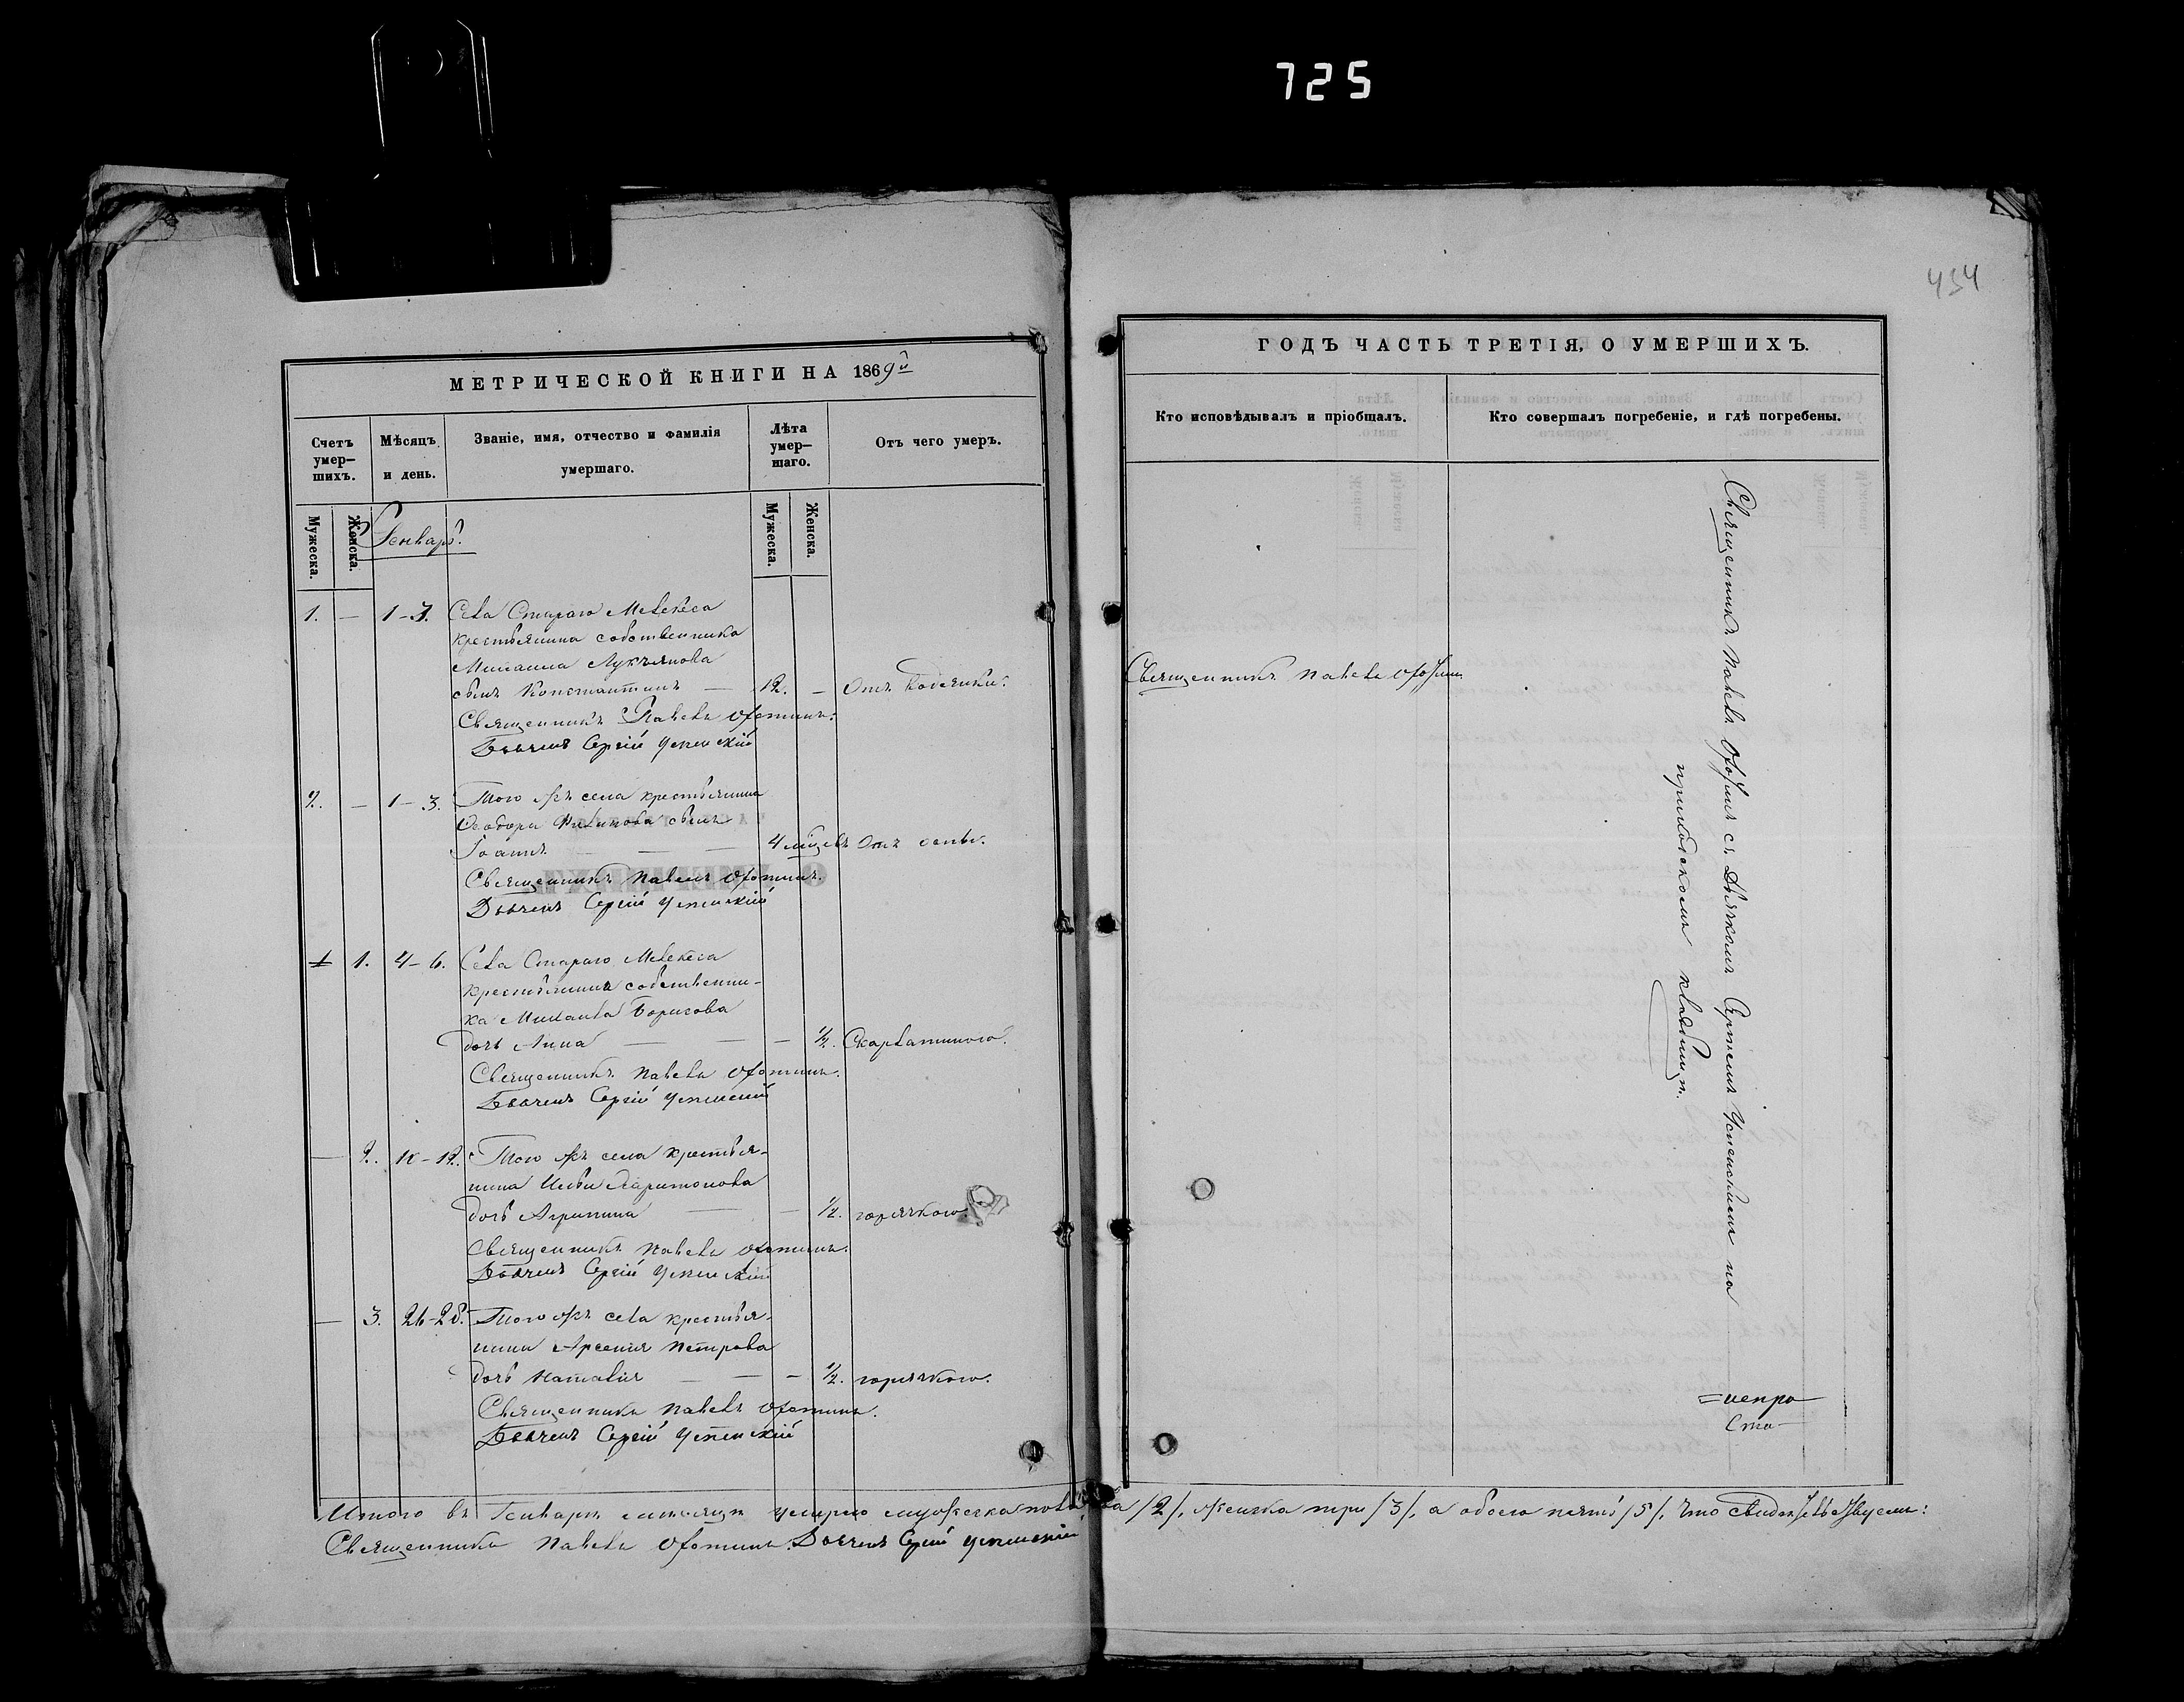 725
454
МЕТРИЧЕСКОЙ КНИГИ НА 1869й
Счетъ умер-шихъ.
Мѣсяцъ и день.
Званіе, имя, отчество и фамилія умершаго.
Лѣта умер-шаго.
Отъ чего умеръ.
Мужеска.
Женска.
Мужеска.
Женска.
Генварь.
1. — 1-3. Села Стараго Мелекеса
крестьянина собственника
Михаила Лукьянова
сынъ Константинъ — 12. — Отъ водянки.
Священникъ Павелъ
Дьячекъ Сергій Успенскій
2. — 1-3. Того же села крестьянина
Ѳеодора сынъ
Іоаннъ — — — 4 мѣсцевъ Отъ оспы.
Священникъ Павелъ
Дьячекъ Сергій Успенскій
1 1. 4-6. Села Стараго Мелекеса
крестьянина собственни-
ка Михаила Борисова
дочь Анна — — — ½. Скарлатиною.
Священникъ Павелъ
Дьячекъ Сергій Успенскій
— 2. 10-12. Того же села крестья-
нина Ильи Харитонова
дочь Агрипина — — ½. горячкою.
Священникъ Павелъ
Дьячекъ Сергій Успенскій
— 3. 26-28. Того же села крестья-
нина Арсенія Петрова
дочь Наталія — — — ½. горячкою.
Священникъ Павелъ
Дьячекъ Сергій Успенскій
ГОДЪ ЧАСТЬ ТРЕТІЯ, О УМЕРШИХЪ.
Кто исповѣдывалъ и пріобщалъ.
Кто совершалъ погребеніе, и гдѣ погребены.
Священникъ Павелъ
Священникъ Павелъ съ Дьячкомъ Сергіемъ Успенскимъ на
приходскомъ кладбищѣ.
Итого въ Генварѣ мѣсяцѣ умерло мужеска пола два /2/, женска три /3/, а обоего пять /5/. Что свидѣтельствуемъ:
Священникъ Павелъ Дьячекъ Сергій Успенскій